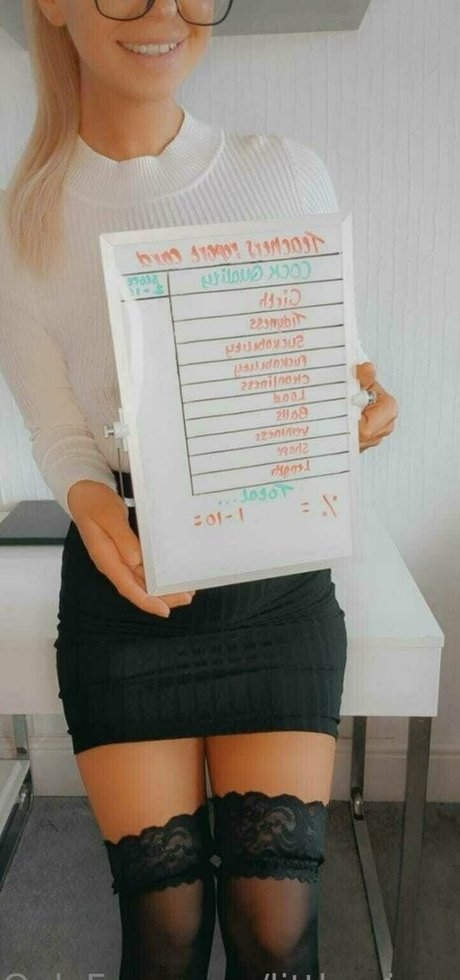 Teachers report card
COCK Quality
Score 1-10
Girth
Tidyness
Suckability
Fuckability
cleanliness
Load
Balls
veininess
Shape
Length
Total...
% = 1-10=